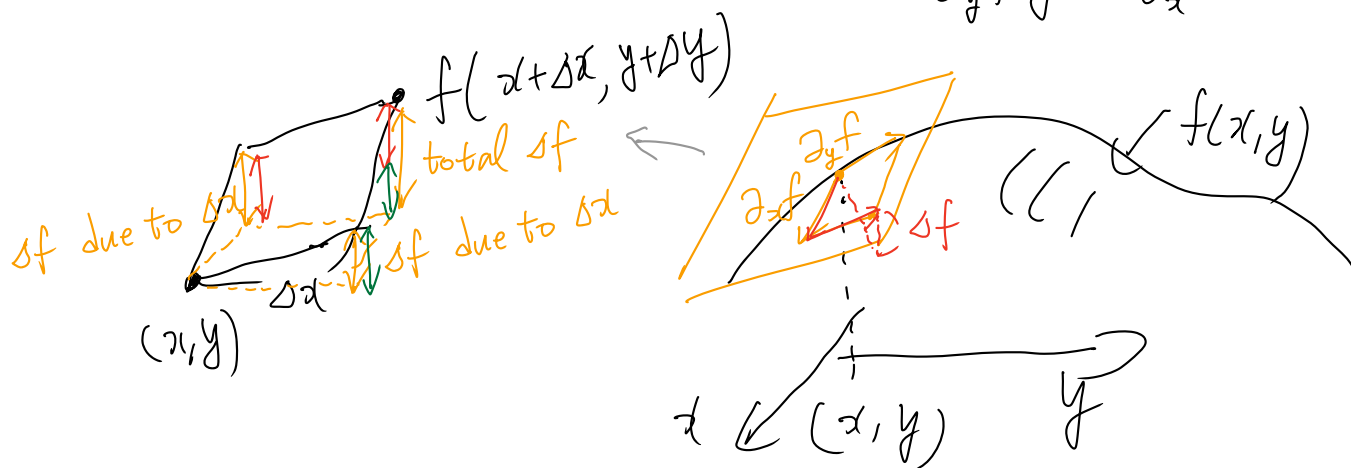 y, y x
f(x+Δx, y+Δy)
total Δf
Δf due to Δx
Δf due to Δx
Δx
(x,y)
∂yf
∂xf
Δf
f(x,y)
x
(x,y)
y